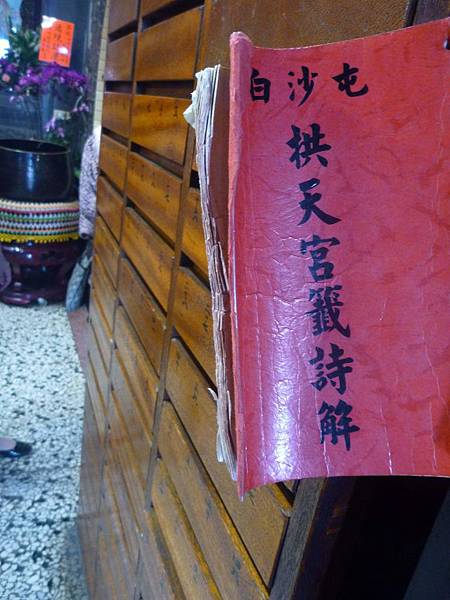 白沙屯
拱天宮籤詩解